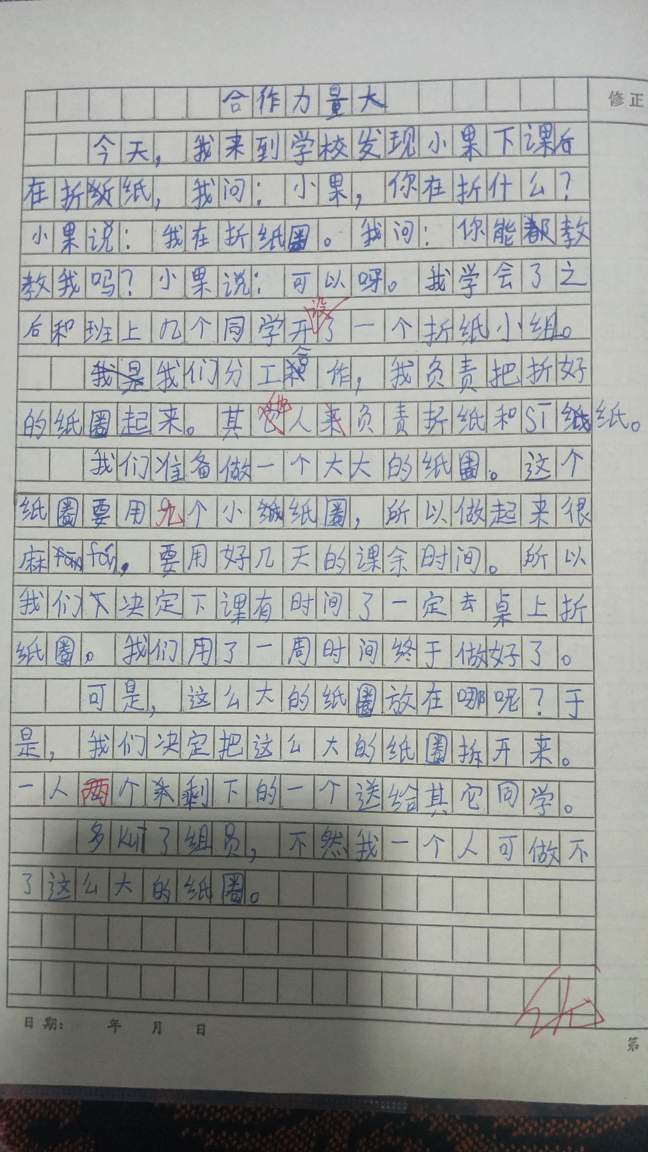 修正
合作力量大
今天，我来到学校发现小果下课后
在折纸，我问：小果，你在折什么？
小果说：我在折纸圈。我问：你能教
教我吗？小果说：可以呀。我学会了之
后和班上几个同学开设了一个折纸小组。
我们分工合作，我负责把折好
的纸圈起来。其他人负责折纸和ST纸。
我们准备做一个大大的纸圈。这个
纸圈要用九个小纸圈，所以做起来很
麻fán，要用好几天的课余时间。所以
我们下决定下课有时间了一定去桌上折
纸圈。我们用了一周时间终于做好了。
可是，这么大的纸圈放在哪呢？于
是，我们决定把这么大的纸圈拆开来。
一人两个剩下的一个送给其它同学。
多kuī了组员，不然我一个人可做不
了这么大的纸圈。
日期： 年 月 日
第